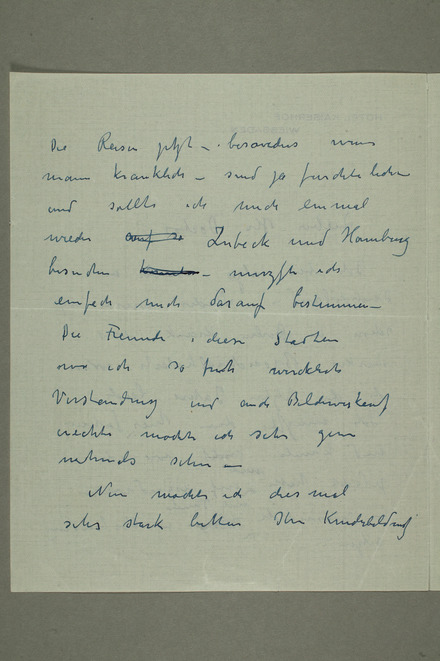 Die Reisen jetzt – besonders wenn
man kränklich – sind ja fürchterlich
und sollte ich noch einmal
wieder auf so Lübeck und Hamburg
besuchen – müsste ich
einfach mich darauf bestimmen –
Die Freunde i diesen Städten
wo ich so früh wirklich
Verständnis und auch Bilderverkauf
möchte ich sehr gern
nochmals sehen –
Nun möchte ich diesmal
sehr stark bitten Ihre